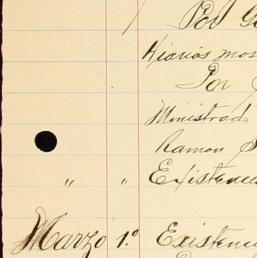 Por
Hiarios mos
Por
Ministrad
Ramon
" " Existencia
Marzo 1º Existenci